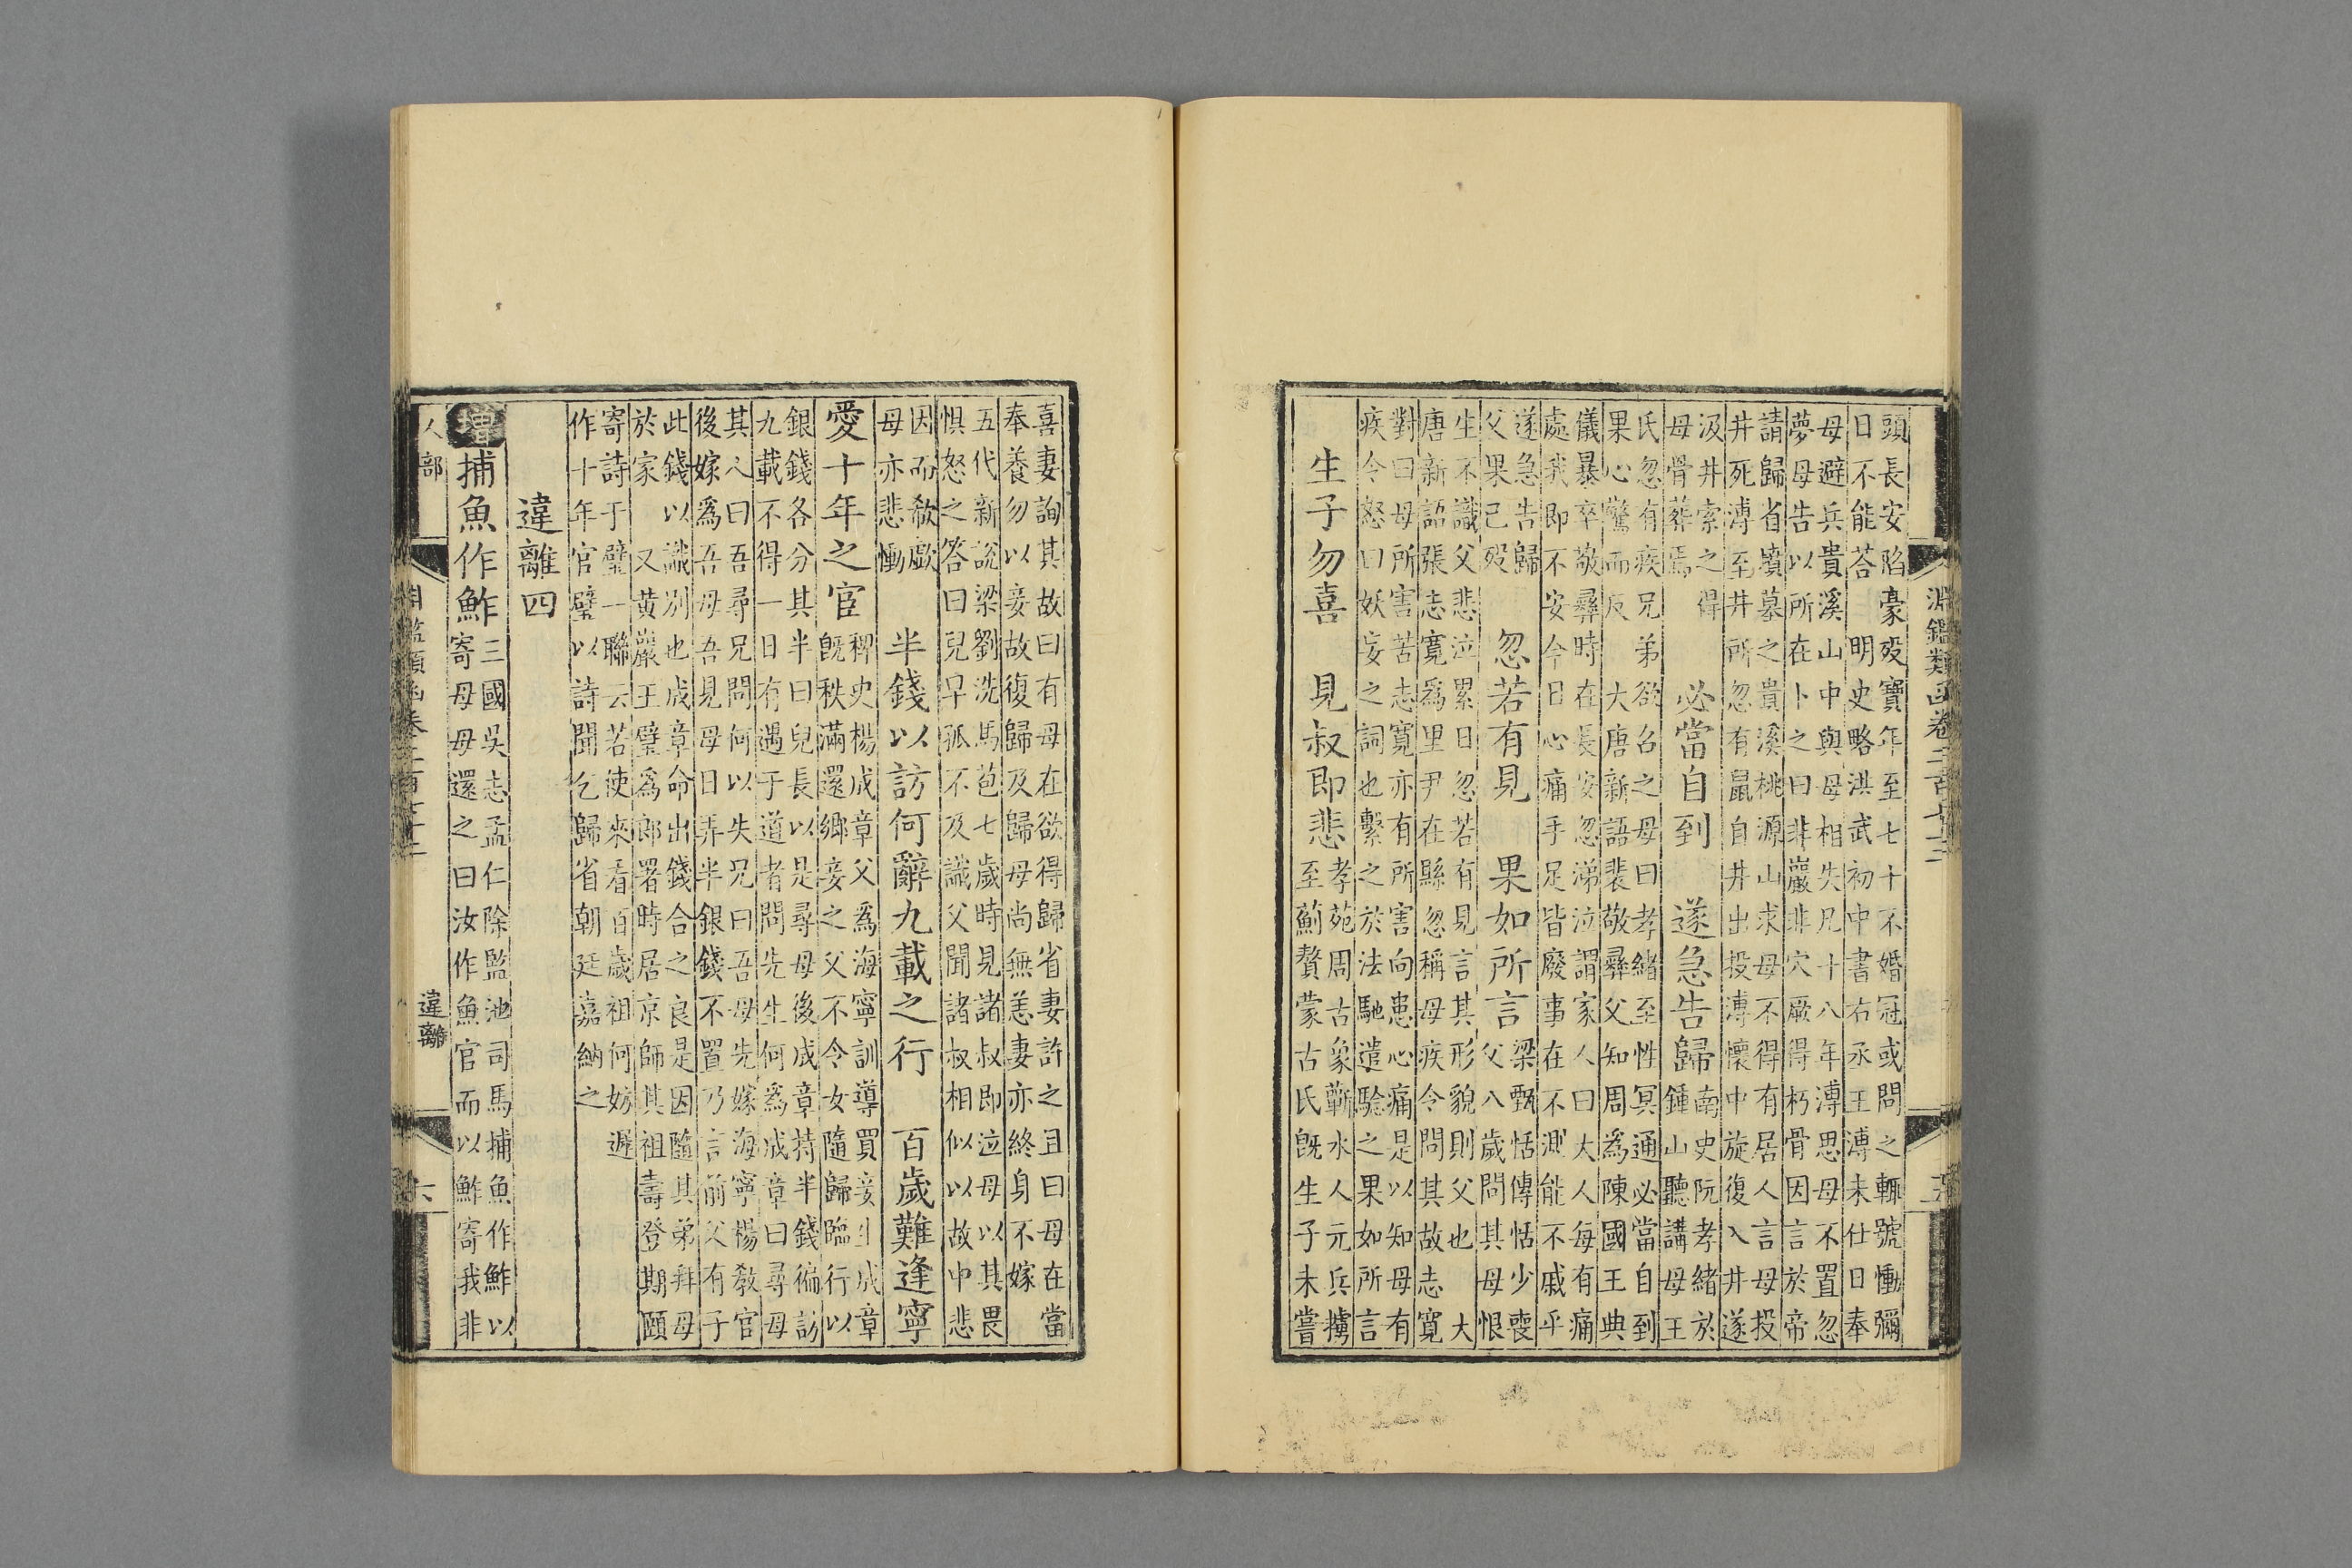 頭長安陷豪歿寶年至七十不婚冠或問之輒號慟彌
日不能荅 明史略洪武初中書右丞王溥未仕日奉
母避兵貴溪山中與母相失凡十八年溥思母不置忽
夢母告以所在卜之曰非巖非穴厥得朽骨因言於帝
請歸省墳墓之貴溪桃源山求母不得有居人言母投
井死溥至井所忽有鼠自井出投溥懷中旋復入井遂
汲井索之得
母骨葬焉
必當自到 遂急告歸
南史阮孝緒於
鍾山聽講母王
氏忽有疾兄弟欲召之母曰孝緒至性冥通必當自到
果心驚而反 大唐新語裴敬彝父知周為陳國王典
儀暴卒敬彝時在長安忽涕泣謂家人曰大人每有痛
處我即不安今日心痛手足皆廢事在不測能不戚乎
遂急告歸
父果已歿
忽若有見 果如所言
梁甄恬傳恬少喪
父八歲問其母恨
生不識父悲泣累日忽若有見言其形貌則父也 大
唐新語張志寬為里尹在縣忽稱母疾令問其故志寬
對曰母所害苦志寬亦有所害向患心痛是以知母有
疾令怒曰妖妄之詞也繫之於法馳遣驗之果如所言
生子勿喜 見叔即悲
孝苑周古象蘄水人元兵擄
至薊贅蒙古氏既生子未嘗
淵鑑類函卷二百七十二
五
喜妻詢其故曰有母在欲得歸省妻許之且曰母在當
奉養勿以妾故復歸及歸母尚無恙妻亦終身不嫁
五代新說梁劉洗馬苞七歲時見諸叔即泣母以其畏
惧怒之答曰兒早孤不及識父聞諸叔相似以故中悲
因而欷歔
母亦悲慟
半錢以訪何辭九載之行 百歲難逢寧
愛十年之官
稗史楊成章父為海寧訓導買妾生成章
既秩滿還鄉妾之父不令女隨歸臨行以
銀錢各分其半曰兒長以是尋母後成章持半錢徧訪
九載不得一日有遇于道者問先生何為成章曰尋母
其人曰吾尋兄問何以失兄曰吾母先嫁海寧楊教官
後嫁為吾母吾見母日弄半銀錢不置乃言前父有子
此錢以識別也成章命出錢合之良是因隨其弟拜母
於家 又黄巖王璧為郎署時居京師其祖壽登期頤
寄詩于璧一聯云若使來看百歲祖何妨遲
作十年官璧以詩聞乞歸省朝廷嘉納之
違離四
增捕魚作鮓
三國吳志孟仁除監池司馬捕魚作鮓以
寄母母還之曰汝作魚官而以鮓寄我非
人部
違離
六